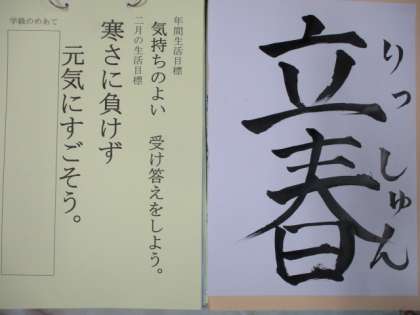 立春
りっしゅん
年間生活目標
気持ちのよい 受け答えをしよう。
二月の生活目標
寒さに負けず
元気にすごそう。
学級のめあて